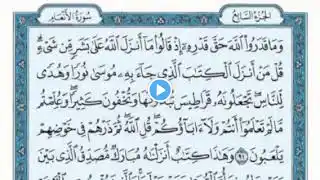 الجزء السابع سورة الأنعام
وَمَا قَدَرُوا۟ ٱللَّهَ حَقَّ قَدْرِهِۦٓ إِذْ قَالُوا۟ مَآ أَنزَلَ ٱللَّهُ عَلَىٰ بَشَرٍ مِّن شَىْءٍ
قُلْ مَنْ أَنزَلَ ٱلْكِتَـٰبَ ٱلَّذِى جَآءَ بِهِۦ مُوسَىٰ نُورًا وَهُدًى
لِّلنَّاسِ تَجْعَلُونَهُۥ قَرَاطِيسَ تُبْدُونَهَا وَتُخْفُونَ كَثِيرًا وَعُلِّمْتُم
مَّا لَمْ تَعْلَمُوٓا۟ أَنتُمْ وَلَآ ءَابَآؤُكُمْ قُلِ ٱللَّهُ ثُمَّ ذَرْهُمْ فِى خَوْضِهِمْ
يَلْعَبُونَ ٩١ وَهَـٰذَا كِتَـٰبٌ أَنزَلْنَـٰهُ مُبَارَكٌ مُّصَدِّقُ ٱلَّذِى بَيْنَ